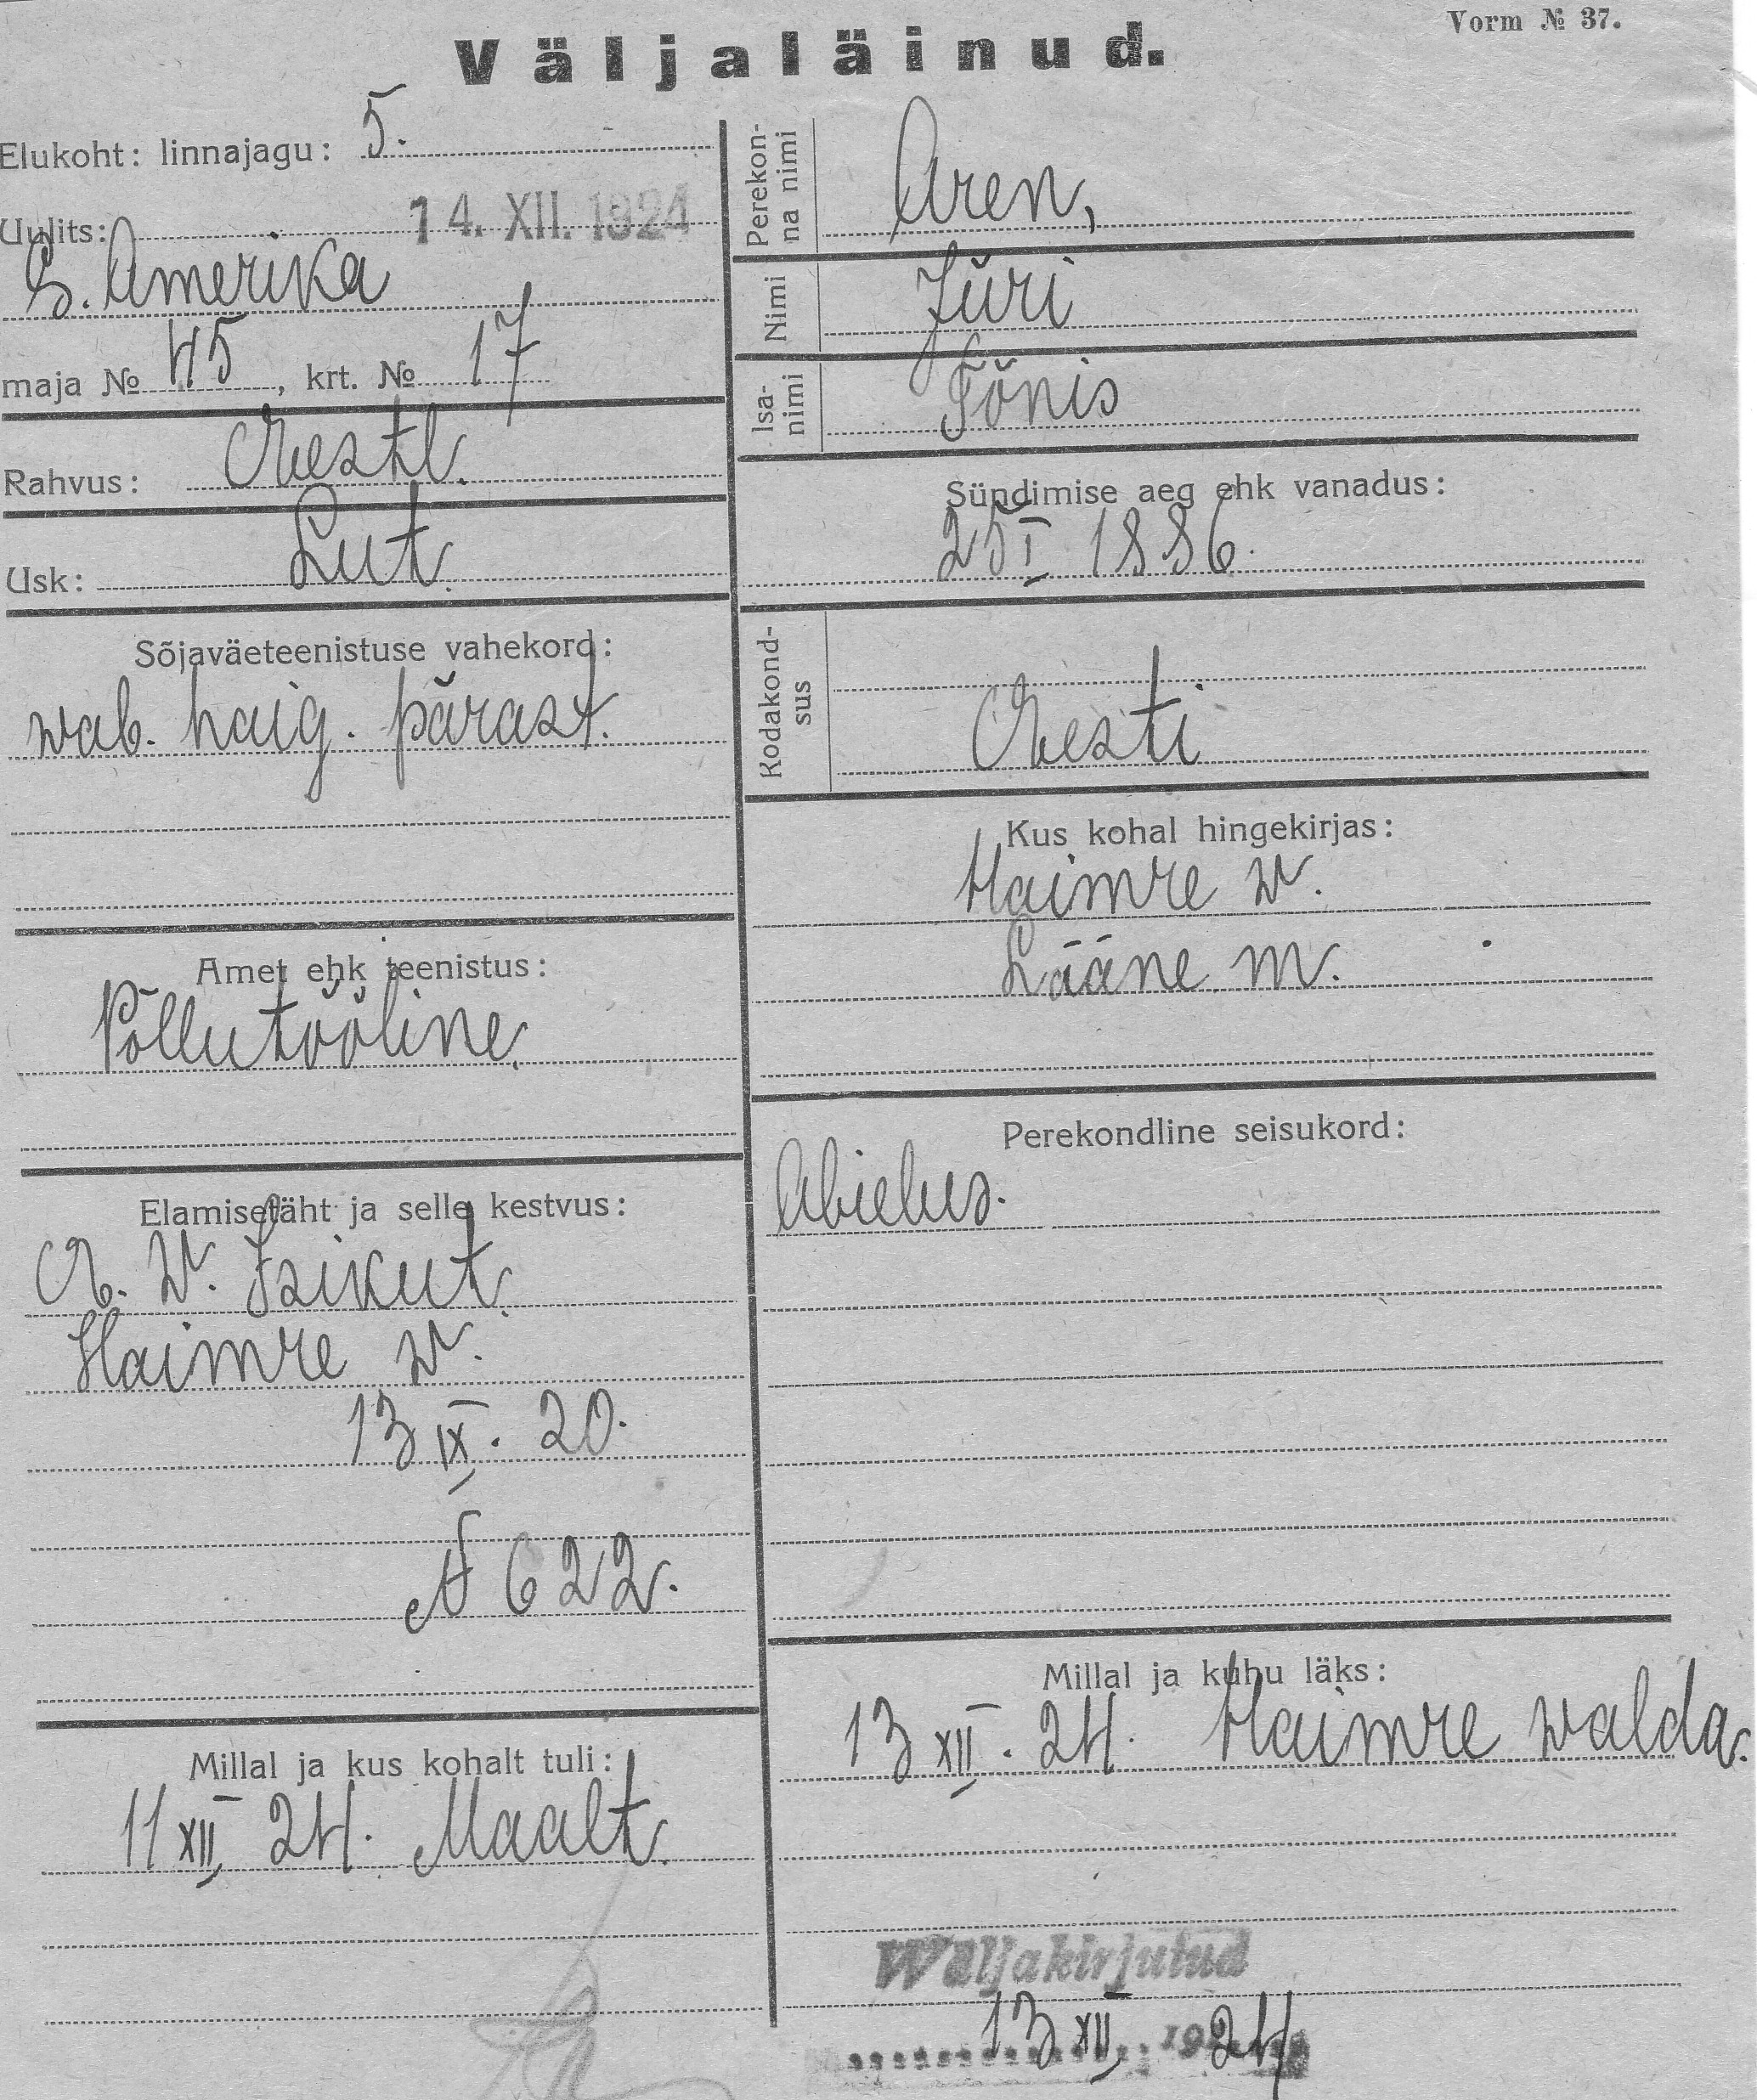 Vorm № 37.
Väljaläinud.
Elukoht: linnajagu: 5.
Uulits: 14. XII. 1924
S. Amerika
maja № 45, krt. № 17
Rahvus: Eestl.
Usk: Lut.
Sõjaväeteenistuse vahekord:
wab. haig. pärast.
Amet ehk teenistus:
Põllutööline
Elamisetäht ja selle kestvus:
E. W. Isikut.
Haimre w.
13 IX. 20.
№ 622.
Millal ja kus kohalt tuli:
11 XII 24. Maalt.
Perekonna nimi Aren,
Nimi Jüri
Isanimi Tõnis
Sündimise aeg ehk vanadus:
25 I 1886.
Kodakondsus
Eesti
Kus kohal hingekirjas:
Haimre w.
Lääne m.
Perekondline seisukord:
Abielus.
Millal ja kuhu läks:
13 XII. 24. Haimre walda.
Wäljakirjutud
13 XII 1924